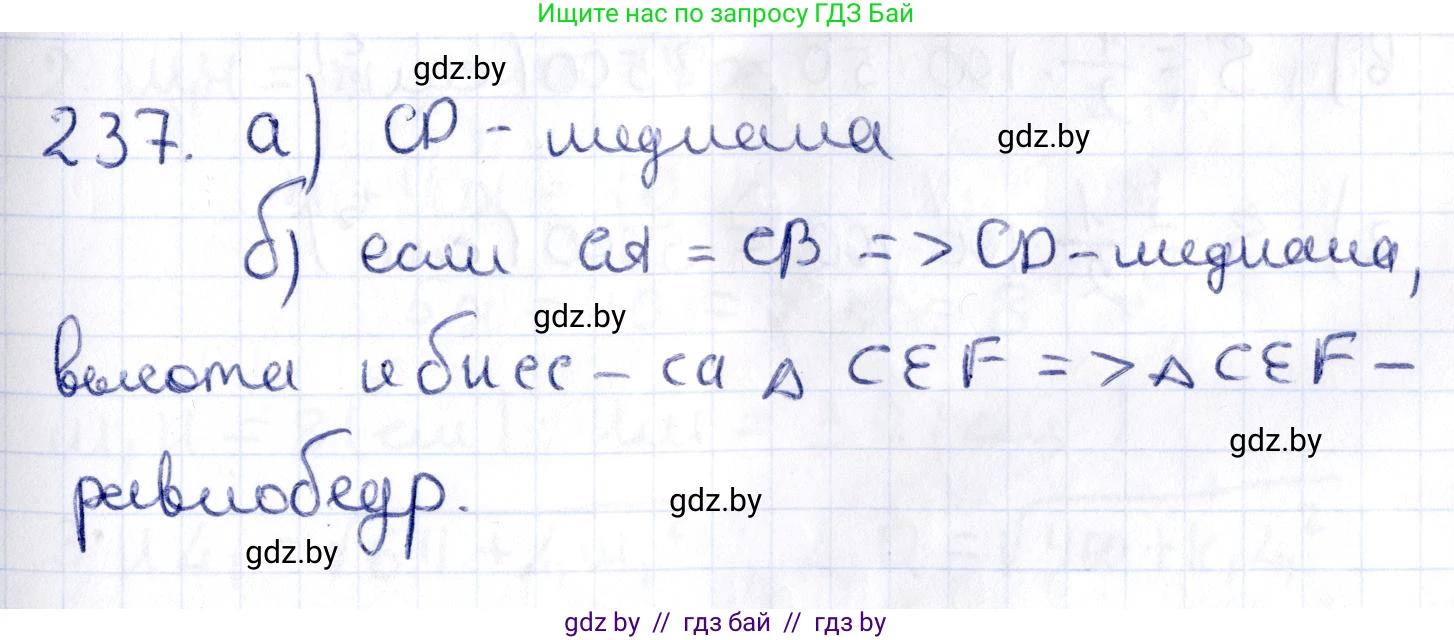 Ищите нас по запросу ГДЗ Бай
gdz.by
237. а) CD - медиана
gdz.by
б) если CA = CB => CD - медиана,
gdz.by
высота и бисс - са △ CEF => △ CEF -
gdz.by
равнобедр.
gdz.by
gdz.by
gdz.by // гдз бай // гдз by